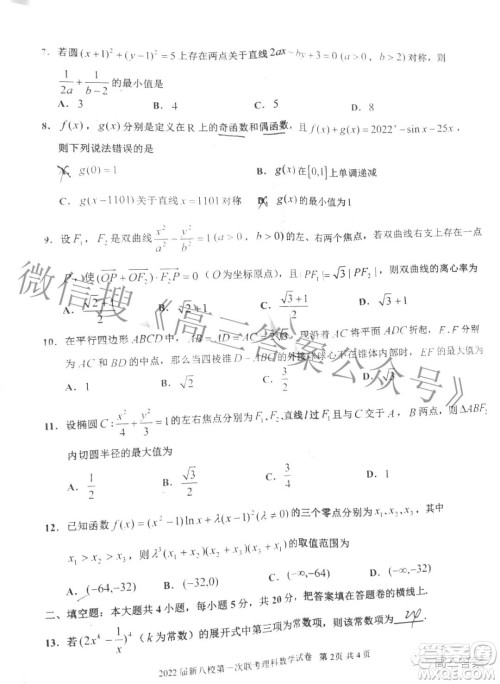 7. 若圆(x+1)²+(y-1)²=5上存在两点关于直线2ax-by+3=0对称，则
1/(2a)+1/(b-2)的最小值是
A. 3 B. 4 C. 5 D. 8
8. f(x)，g(x)分别是定义在R上的奇函数和偶函数，且f(x)+g(x)=2022ˣ-sin x-25x，
则下列说法错误的是
A. g(0)=1 B. g(x)在[0,1]上单调递减
C. g(x-1101)关于直线x=1101对称 D.
9. 设F₁，F₂是双曲线x²/a²-y²/b²=1(a>0，b>0)的左、右两个焦点，若双曲线右支上存在一点
P，使(OP+OF₂)·F₂P=0（O为坐标原点），且|PF₁|=√3|PF₂|，则双曲线的离心率为
A. (√2+1)/2 B. √2+1 C. (√3+1)/2 D. √3+1
10. 在平行四边形ABCD中，
为AC和BD的中点，那么当四棱锥的外接球球心不在锥体内部时，EF的最大值为
A. 1 C. √3/2
11. 设椭圆C: x²/4+y²/3=1的左右焦点分别为F₁、F₂，直线l过F₁且与C交于A，B两点，则△ABF₂
内切圆半径的最大值为
A. 1/2 B. √3/2 C. 3/4 D. 1
12. 已知函数f(x)=(x²-1)ln x+λ(x-1)²(λ≠0)的三个零点分别为x₁,x₂,x₃，其中
x₁>x₂>x₃，则λ³(x₁+x₂)(x₂+x₃)(x₃+x₁)的取值范围为
A. (-64,-32) B. (-32,0) C. (-∞,-64) D. (-∞,-32)
二、填空题：本大题共4小题，每小题5分，共20分，把答案填在答题卷的横线上．
13. 若(2x⁴-1/x)ᵏ（k为常数）的展开式中第三项为常数项，则该常数项为 24 ．
2022届新八校第一次联考理科数学试卷 第2页 共4页
微信搜《高三答案公众号》